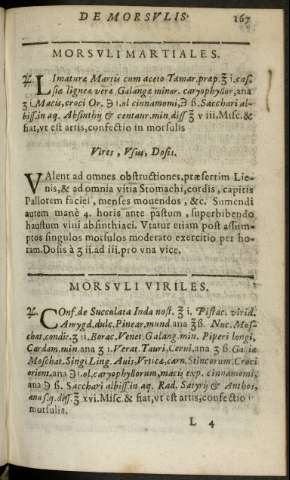 DE MORSVLIS. 167
MORSVLI MARTIALES.
℞. LImaturæ Martis cum aceto Tamar. præp. ℥ i. cas-
siæ ligneæ veræ Galangæ minor. caryophyllor, ana
ʒ i Macis, croci Or. ℈ i. ol cinnamomi, ℈ ß. Sacchari al-
biss. in aq. Absinthij & centaur. min. diss ℥ v iii. Misc. &
fiat, vt est artis, confectio in morsulis
Vires, Vsus, Dosis.
VAlent ad omnes obstructiones, præsertim Lie-
nis, & ad omnia vitia Stomachi, cordis, capitis
Pallorem faciei, menses mouendos, &c. Sumendi
autem manè 4. horis ante pastum, superbibendo
haustum vini absinthiaci. Vtatur etiam post assum-
ptos singulos morsulos moderato exercitio per ho-
ram. Dosis à ʒ ii. ad iii. pro vna vice.
MORSVLI VIRILES.
℞. COnf. de Succolata Inda nost. ℥ i. Pistac. virid.
Amygd. dulc. Pinear. mund. ana ℥ ß. Nuc. Mos-
chat. condit. ʒ ii. Borac. Venet Galang. min. Piperi longi,
Cardam. min. ana ʒ i. Verat. Tauri, Cerui, ana ʒ ß. Galiæ
Moschat. Singi. Ling. Auis, Vrticæ, carn. Stincorum. Croci
orient. ana ℈ i. ol. caryophyllorum, macis exp. cinnamomi,
ana ℈ ß. Sacchari albiss. in aq. Rad. Satyrij & Anthos,
ana s. q. diss. ℥ xvi. Misc. & fiat, vt est artis, confectio i
morsulis.
L 4